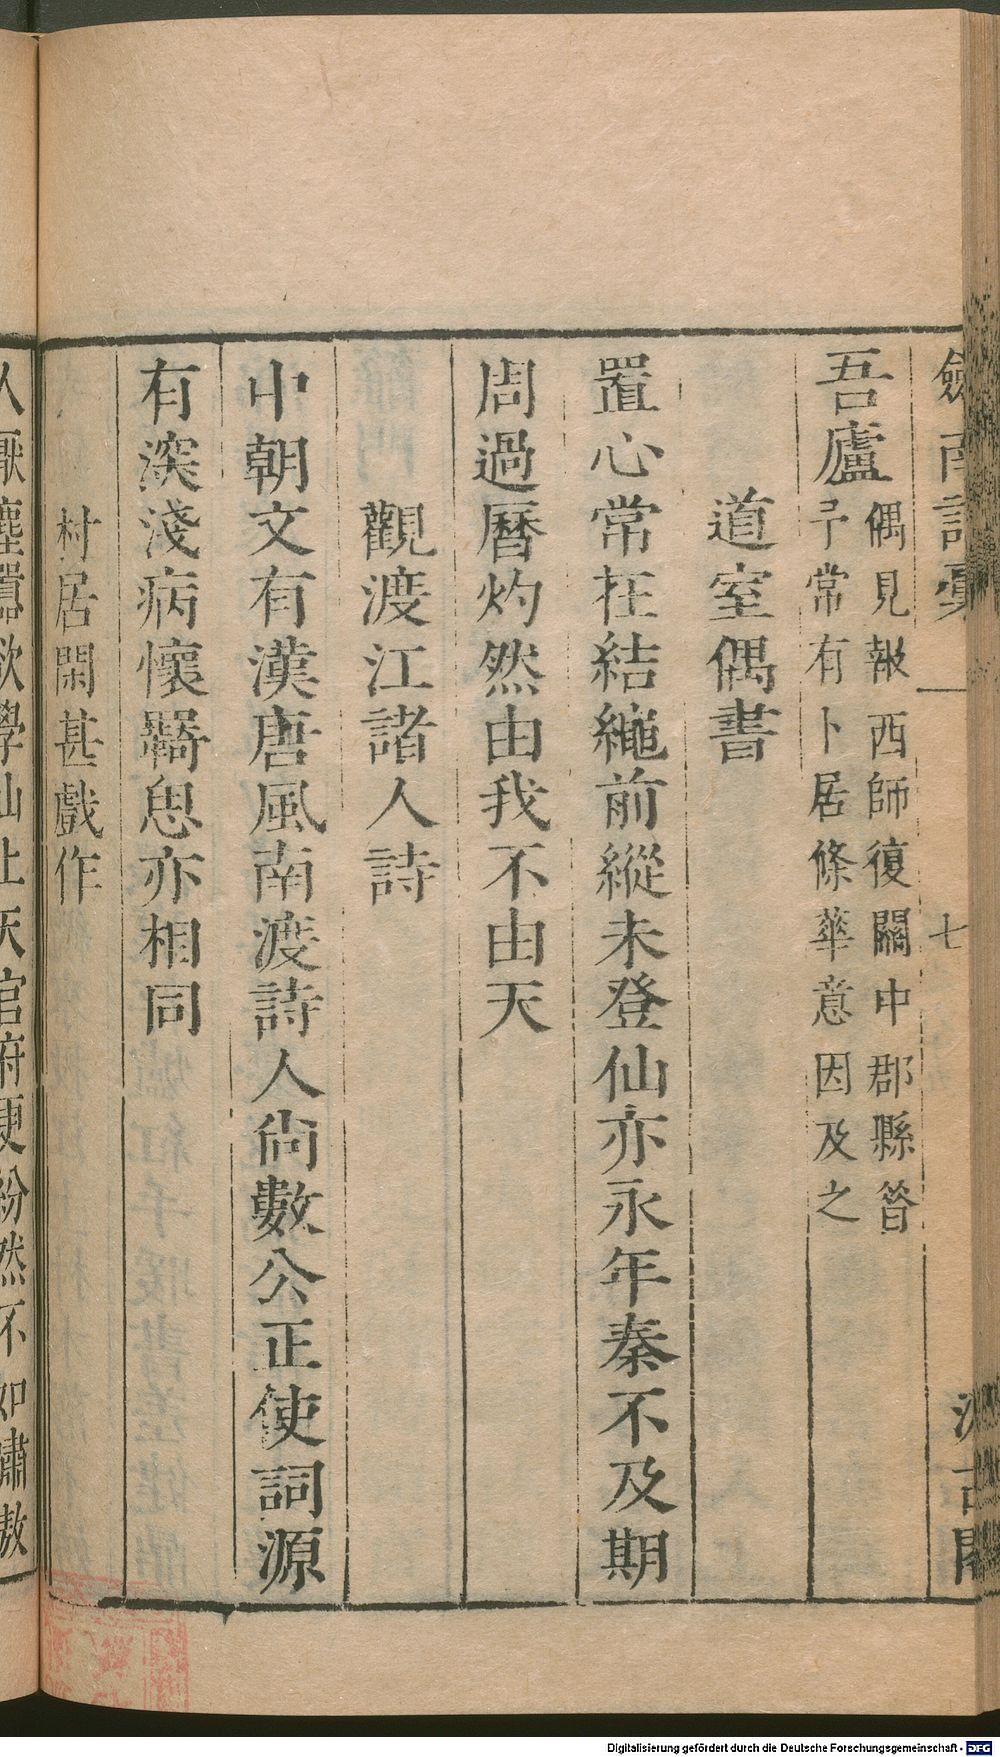 劍南詩稾
一
七
汲古閣
吾廬
偶見報西師復關中郡縣㫺
予常有卜居條華意因及之
道室偶書
置心常在結繩前縱未登仙亦永年秦不及期
周過曆灼然由我不由天
觀渡江諸人詩
中朝文有漢唐風南渡詩人尚數公正使詞源
有深淺病懷羇思亦相同
村居閑甚戲作
人厭塵囂欲學仙上天官府更紛然不如嘯傲
Digitalisierung gefördert durch die Deutsche Forschungsgemeinschaft - DFG